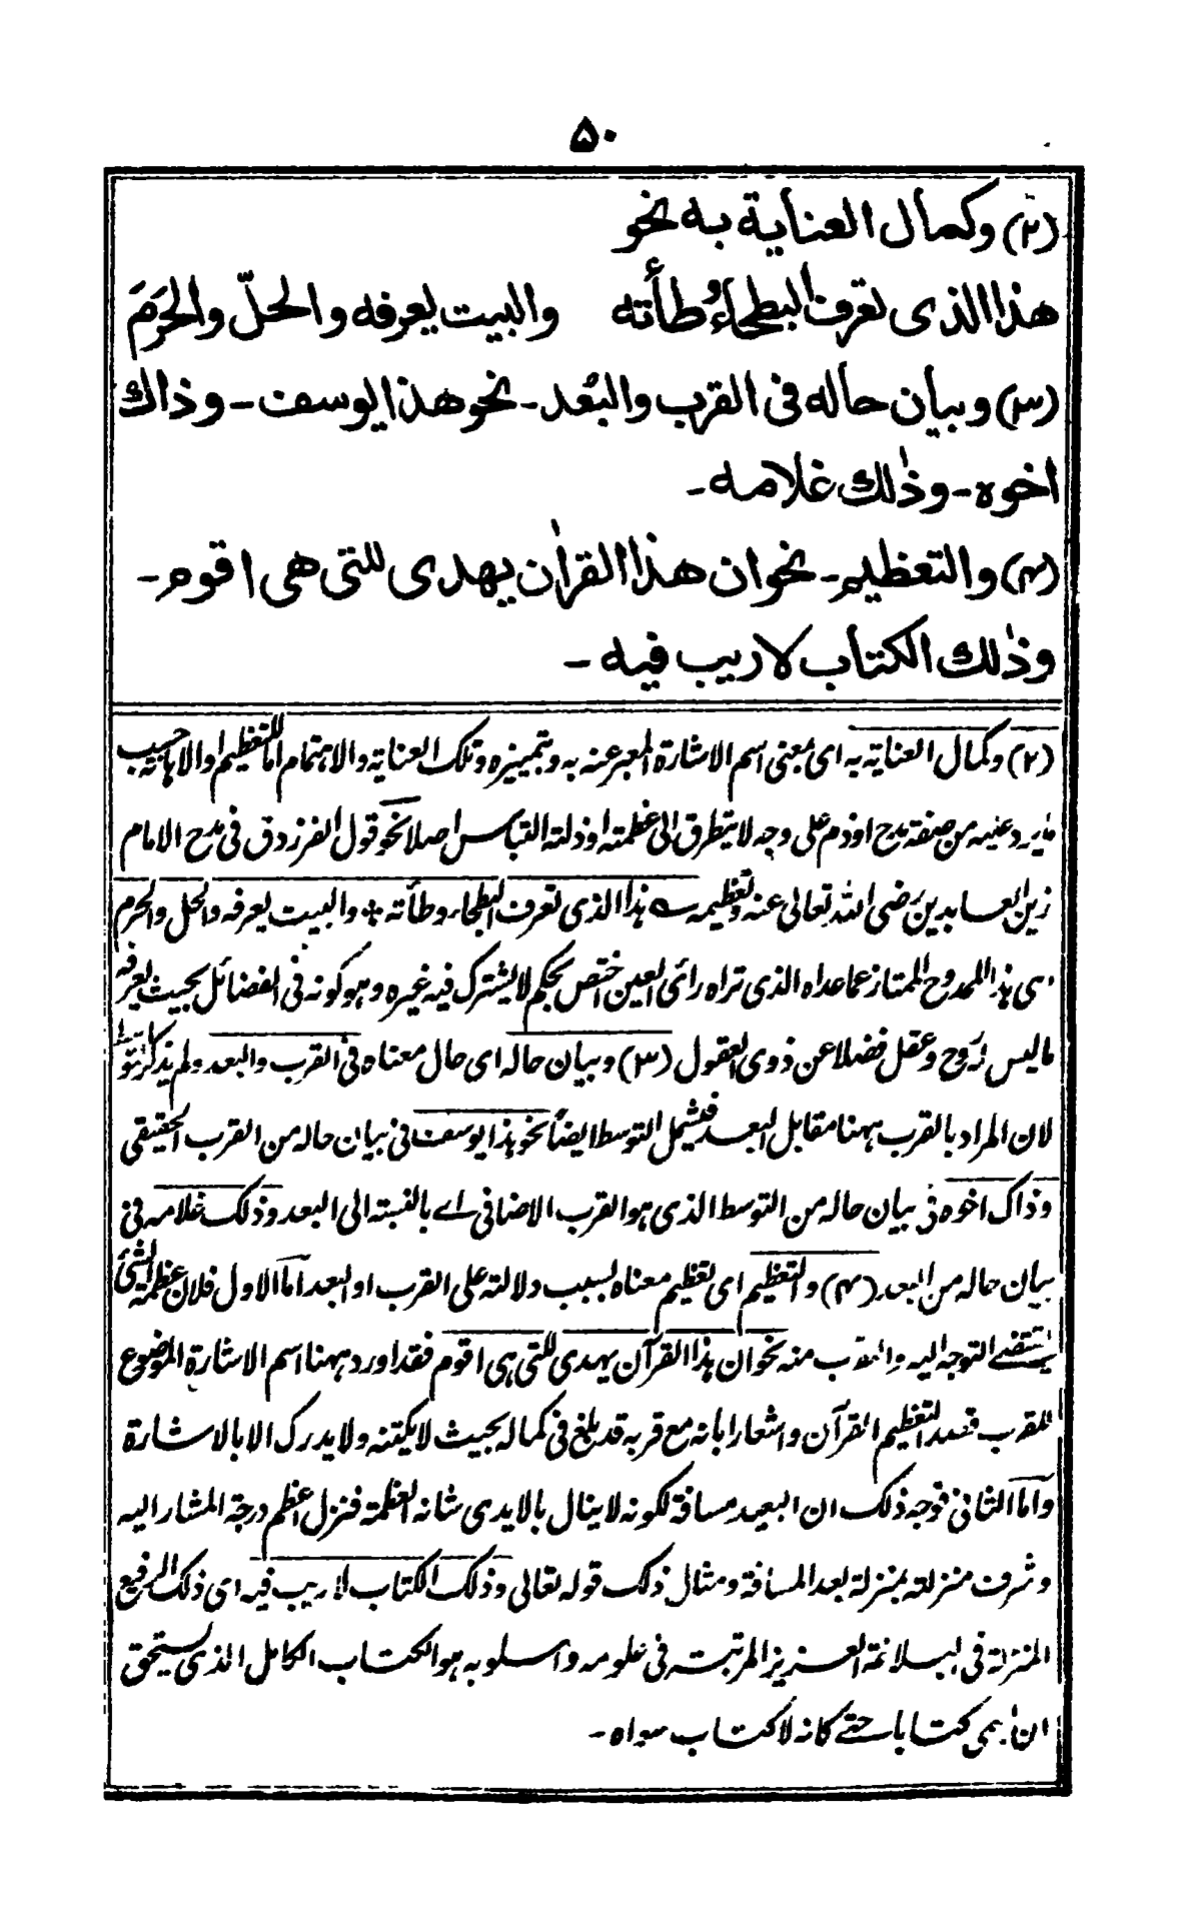 ۵۰
(۲) وكمال العناية به نحو
هذا الذى تعرف البطحاءُ وطأته والبيت يعرفه والحلّ والحرَمَ
(۳) وبيان حاله فى القرب والبُعد - نحو هذا يوسف - وذاك
اخوه - وذٰلك غلامه -
(۴) والتعظيم - نحو ان هذا القراٰن يهدى للتى هى اقوم -
وذٰلك الكتاب لاريب فيه -
(۲) وكمال العناية به اى بمعنى اسم الاشارة المعبر عنه به وبتمييزه وتلك العناية والاهتمام اما للتعظيم او الاهانة بحسب
مايرد عليه من صفة مدح اوذم على وجه لا يتطرق الى عظمته او ذلته القباس اصلا نحو قول الفرزدق فى مدح الامام
زين العابدين رضى الله تعالى عنه وتعظيمه هذا الذى تعرف البطحاء وطأته * والبيت يعرفه والحل والحرم
اى هذا الممدوح الممتاز عما عداه الذى تراه رائى العين اختص بحكم لا يشترك فيه غيره وهو كونه فى الفضائل بحيث يعرفه
ماليس بروح وعقل فضلا عن ذوى العقول (۳) وبيان حاله اى حال معناه فى القرب والبعد ولم يذكر التوسط
لان المراد بالقرب ههنا مقابل البعد فيشمل التوسط ايضاً نحو هذا يوسف فى بيان حاله من القرب الحقيقى
وذاك اخوه فى بيان حاله من التوسط الذى هو القرب الاضافى اے بالنسبة الى البعد وذلك غلامه فى
بيان حاله من البعد (۴) والتعظيم اى تعظيم معناه بسبب دلالته على القرب او البعد اما الاول فلان عظمة الشئ
يقتضے التوجه اليه والتقرب منه نحو ان هذا القرآن يهدى للتى هى اقوم فقد اورد ههنا اسم الاشارة الموضوع
للقرب قصد التعظيم القرآن واشعارا بانه مع قربه قد بلغ فى كماله بحيث لا يكتنه ولا يدرك الا بالاشارة
واما الثانى فوجه ذلك ان البعيد مسافة لكونه لا ينال بالايدى شانه العظمة فنزل عظم درجة المشار اليه
وشرف منزلته بمنزلة بعد المسافة ومثال ذلك قوله تعالى وذلك الكتاب لا ريب فيه اى ذلك الرفيع
المنزلة فى البلاغة العزيز المرتبة فى علومه واسلوبه هو الكتاب الكامل الذى يستحق
ان يسمى كتابا حتے كانه لا كتاب سواه -